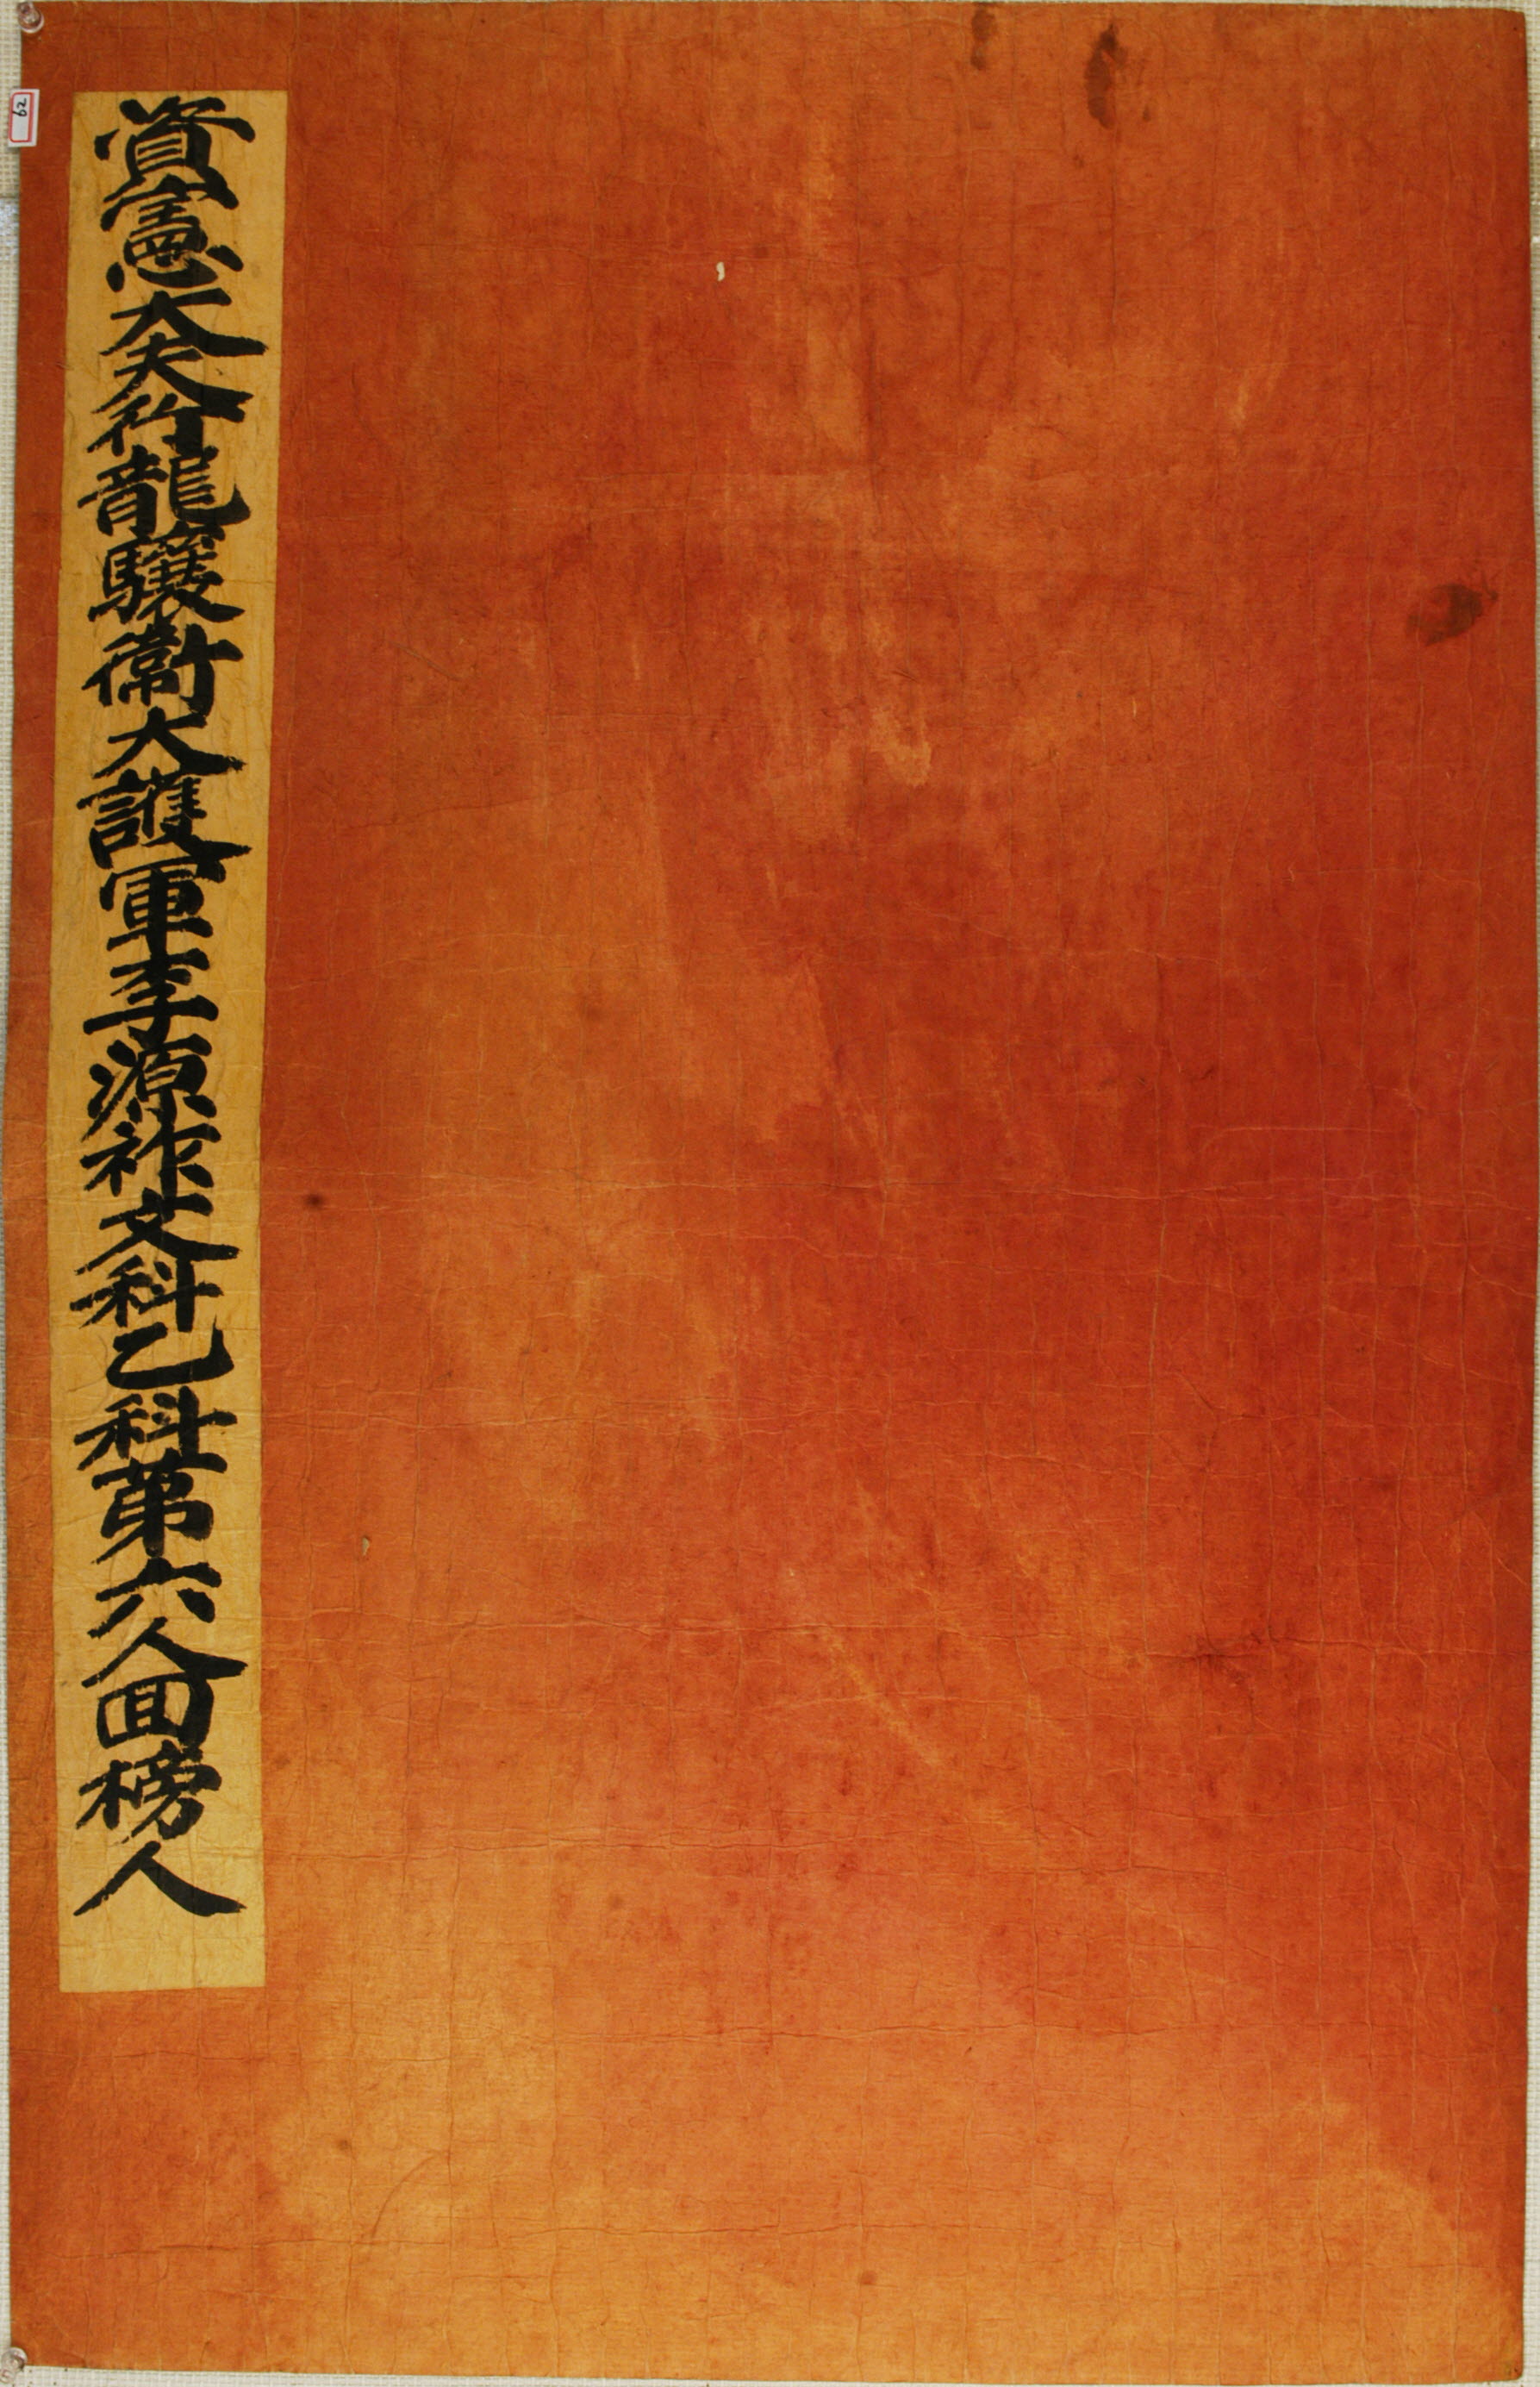 資憲大夫行龍驤衛大護軍李源祚文科乙科第六人回榜人
62